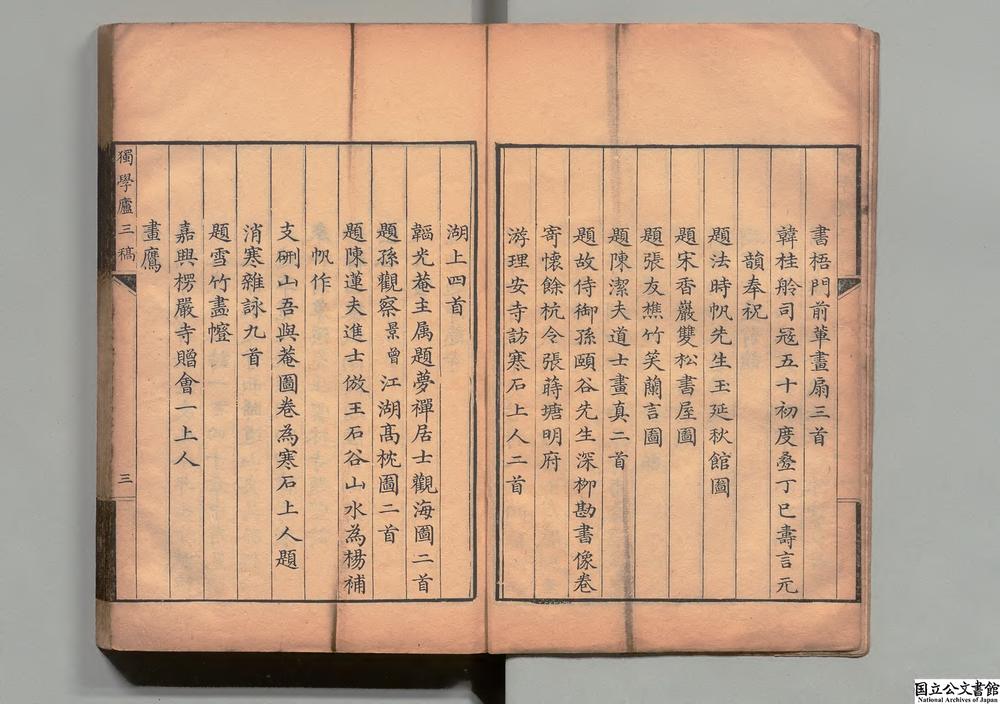 書梧門前軰畫扇三首
韓桂舲司冦五十初度叠丁巳壽言元
韻奉祝
題法時帆先生玉延秋館圖
題宋香巖雙松書屋圖
題張友樵竹笑蘭言圖
題陳潔夫道士畫真二首
題故侍御孫頤谷先生深柳勘書像卷
寄懷餘杭令張蒔塘明府
游理安寺訪寒石上人二首
湖上四首
韜光菴主属題夢禪居士觀海圖二首
題孫觀察景曾江湖髙枕圖二首
題陳蓮夫進士倣王石谷山水為楊補
帆作
支硎山吾與菴圖卷為寒石上人題
消寒雜詠九首
題雪竹畫㡧
嘉興楞嚴寺贈會一上人
畫鷹
獨學廬三稿
三
国立公文書館
National Archives of Japan